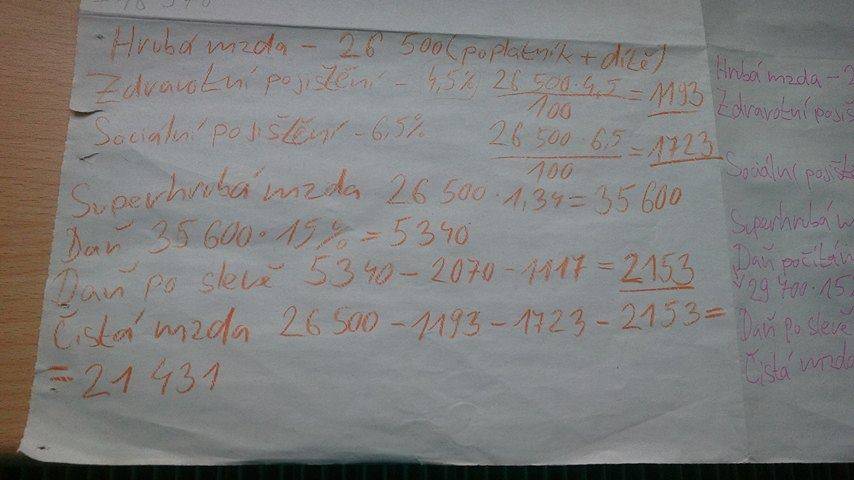 Hrubá mzda - 26 500 (poplatník + dítě)
Zdravotní pojištění - 4,5% 26 500 · 4,5 / 100 = 1193
Sociální pojištění - 6,5% 26 500 · 6,5 / 100 = 1723
Superhrubá mzda 26 500 · 1,34 = 35 600
Daň 35 600 · 15% = 5340
Daň po slevě 5340 - 2070 - 1117 = 2153
Čistá mzda 26 500 - 1193 - 1723 - 2153 =
= 21 431
Hrubá mzda - 2
Zdravotní pojiš
Sociální pojišt
Superhrubá m
Daň počítán
29 400 · 15
Daň po slevě
Čistá mzda